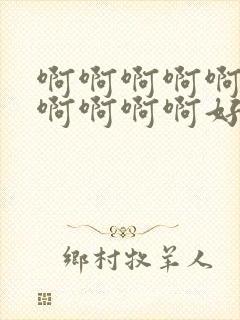 啊啊啊啊啊
啊啊啊啊好
鄉村牧羊人